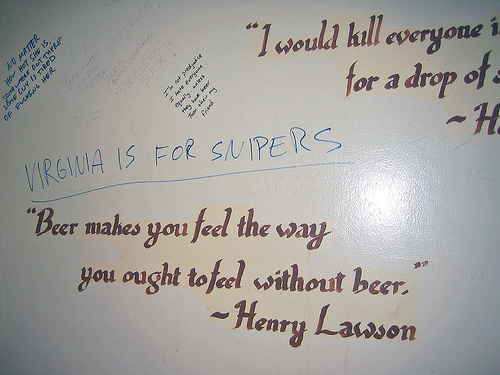 NO MATTER
HOW HOT SHE IS,
SOMEWHERE OUT THERE
SOME GUY IS TIRED
OF FUCKING HER
I'm not prejudice
I hate everyone
Equally unless
they have beer
Then their my
friend
"I would kill everyone i
for a drop of s
~ H
VIRGINIA IS FOR SNIPERS
"Beer makes you feel the way
you ought to feel without beer."
~ Henry Lawson